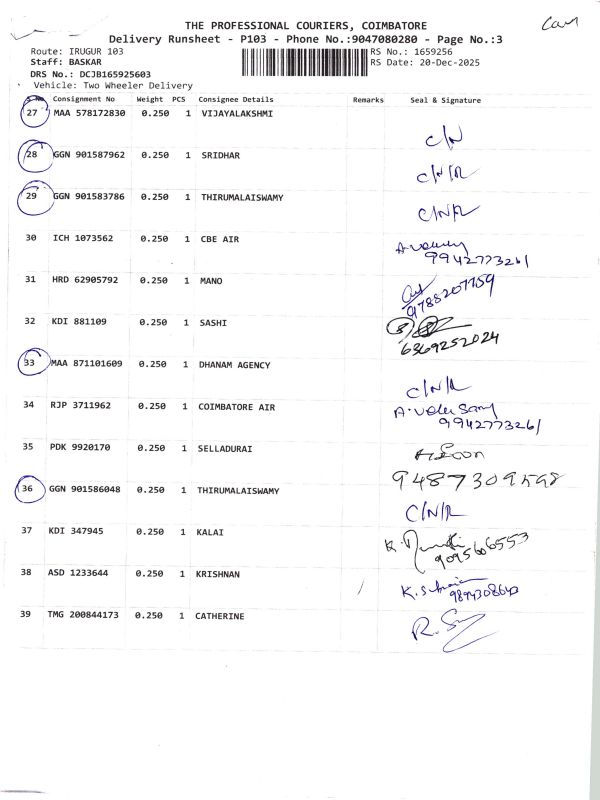 THE PROFESSIONAL COURIERS, COIMBATORE
Delivery Runsheet - P103 - Phone No.:9047080280 - Page No.:3
Route: IRUGUR 103 RS No.: 1659256
Staff: BASKAR RS Date: 20-Dec-2025
DRS No.: DCJB165925603
Vehicle: Two Wheeler Delivery
S No Consignment No Weight PCS Consignee Details Remarks Seal & Signature
27 MAA 578172830 0.250 1 VIJAYALAKSHMI
C/N
28 GGN 901587962 0.250 1 SRIDHAR
C/N/R
29 GGN 901583786 0.250 1 THIRUMALAISWAMY
C/N/R
30 ICH 1073562 0.250 1 CBE AIR
9942773261
31 HRD 62905792 0.250 1 MANO
9788207759
32 KDI 881109 0.250 1 SASHI
6369252024
33 MAA 871101609 0.250 1 DHANAM AGENCY
C/N/R
34 RJP 3711962 0.250 1 COIMBATORE AIR
9942773261
35 PDK 9920170 0.250 1 SELLADURAI
36 GGN 901586048 0.250 1 THIRUMALAISWAMY
C/N/R
37 KDI 347945 0.250 1 KALAI
9095606553
38 ASD 1233644 0.250 1 KRISHNAN
39 TMG 200844173 0.250 1 CATHERINE